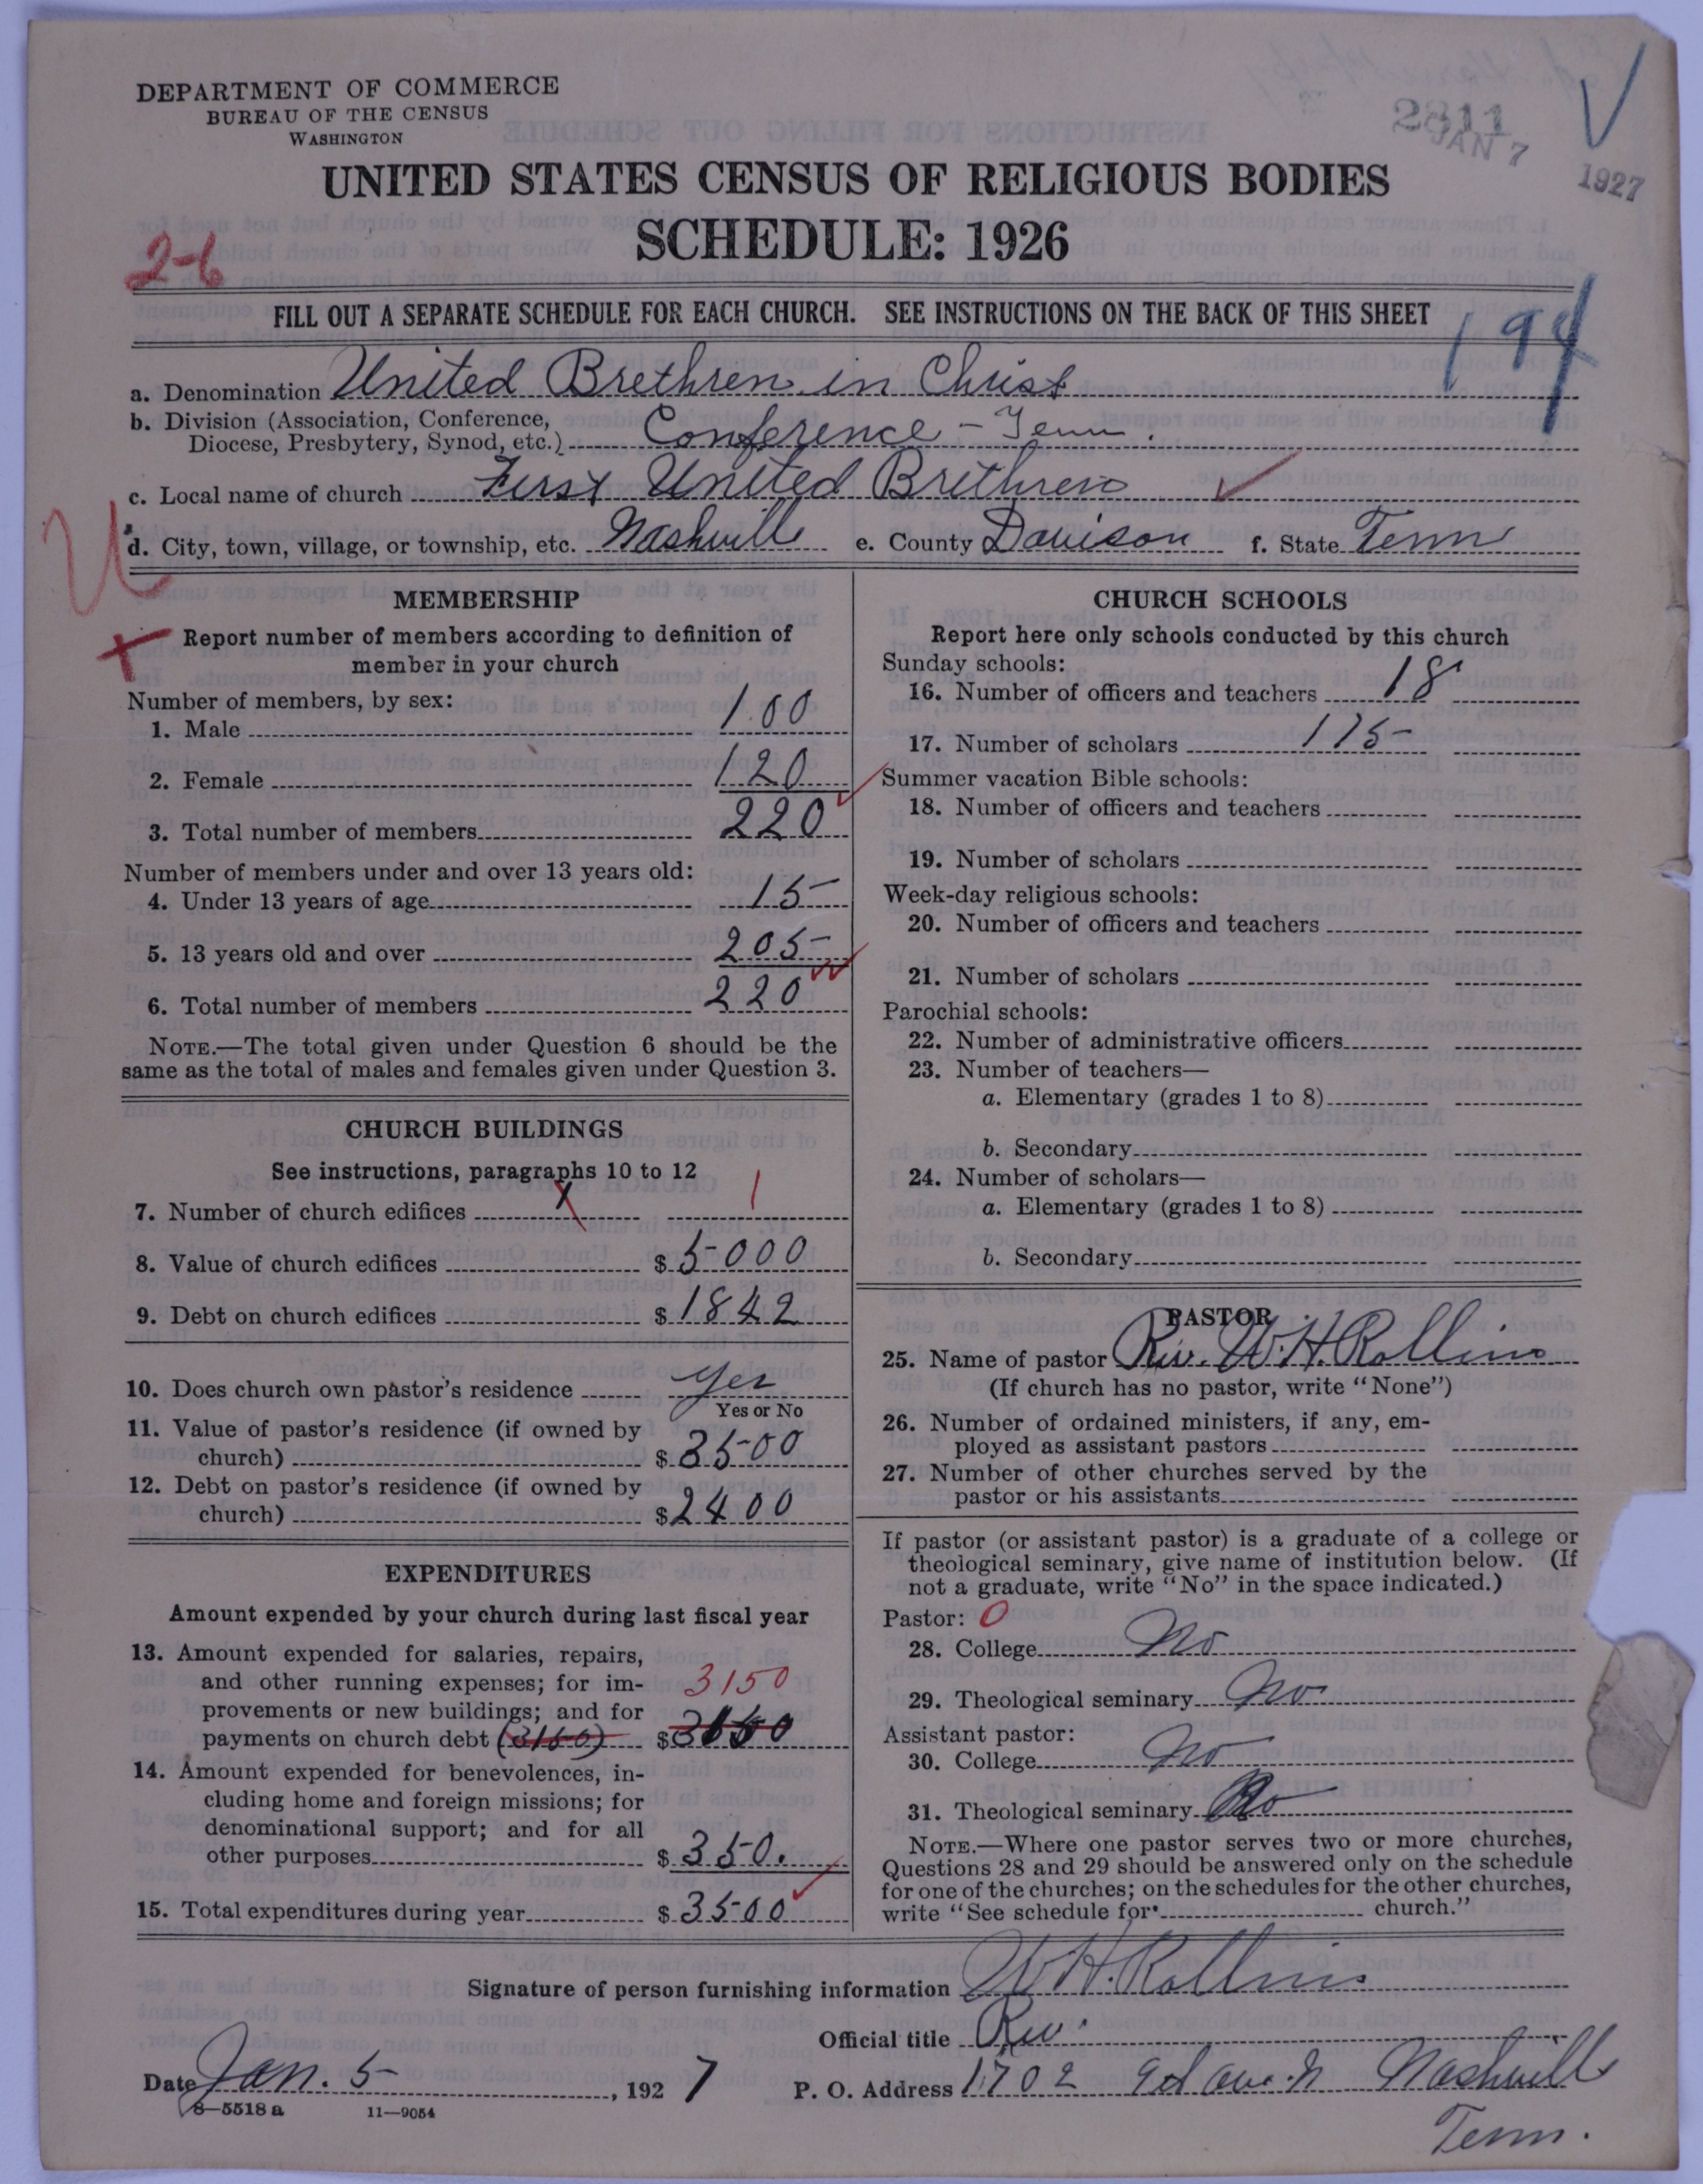 DEPARTMENT OF COMMERCE
BUREAU OF THE CENSUS
WASHINGTON
2811
JAN 7 1927
UNITED STATES CENSUS OF RELIGIOUS BODIES
SCHEDULE: 1926
2-6
FILL OUT A SEPARATE SCHEDULE FOR EACH CHURCH. SEE INSTRUCTIONS ON THE BACK OF THIS SHEET
194
a. Denomination United Brethren in Christ
b. Division (Association, Conference,
Diocese, Presbytery, Synod, etc.) Conference - Tenn.
c. Local name of church First United Brethren
d. City, town, village, or township, etc. Nashville e. County Davison f. State Tenn
U
MEMBERSHIP
Report number of members according to definition of
member in your church
Number of members, by sex:
1. Male 100
2. Female 120
3. Total number of members 220
Number of members under and over 13 years old:
4. Under 13 years of age 15
5. 13 years old and over 205
6. Total number of members 220
NOTE.—The total given under Question 6 should be the
same as the total of males and females given under Question 3.
CHURCH BUILDINGS
See instructions, paragraphs 10 to 12
7. Number of church edifices X 1
8. Value of church edifices $ 5000
9. Debt on church edifices $ 1842
10. Does church own pastor's residence Yes
Yes or No
11. Value of pastor's residence (if owned by
church) $ 3500
12. Debt on pastor's residence (if owned by
church) $ 2400
EXPENDITURES
Amount expended by your church during last fiscal year
13. Amount expended for salaries, repairs,
and other running expenses; for im- 3150
provements or new buildings; and for
payments on church debt (3150) $
14. Amount expended for benevolences, in-
cluding home and foreign missions; for
denominational support; and for all
other purposes $ 350.
15. Total expenditures during year $ 3500
CHURCH SCHOOLS
Report here only schools conducted by this church
Sunday schools:
16. Number of officers and teachers 18
17. Number of scholars 175
Summer vacation Bible schools:
18. Number of officers and teachers
19. Number of scholars
Week-day religious schools:
20. Number of officers and teachers
21. Number of scholars
Parochial schools:
22. Number of administrative officers
23. Number of teachers—
a. Elementary (grades 1 to 8)
b. Secondary
24. Number of scholars—
a. Elementary (grades 1 to 8)
b. Secondary
PASTOR
25. Name of pastor Rev. W. H. Rollins
(If church has no pastor, write "None")
26. Number of ordained ministers, if any, em-
ployed as assistant pastors
27. Number of other churches served by the
pastor or his assistants
If pastor (or assistant pastor) is a graduate of a college or
theological seminary, give name of institution below. (If
not a graduate, write "No" in the space indicated.)
Pastor: 0
28. College No
29. Theological seminary No
Assistant pastor:
30. College No
31. Theological seminary No
NOTE.—Where one pastor serves two or more churches,
Questions 28 and 29 should be answered only on the schedule
for one of the churches; on the schedules for the other churches,
write "See schedule for church."
Signature of person furnishing information W. H. Rollins
Official title Rev.
Date Jan. 5, 1927 P. O. Address 1702 9th ave. N Nashville
Tenn.
8—5518 a 11—9054